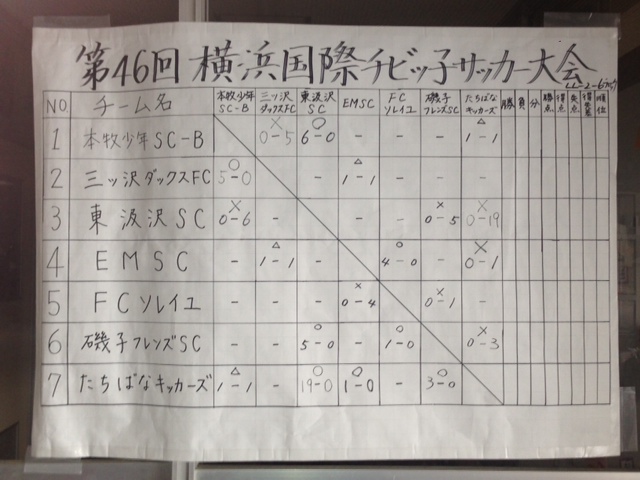 第46回 横浜国際チビッ子サッカー大会
NO. チーム名 本牧少年SC-B 三ッ沢ダックスFC 東汲沢SC EMSC FCソレイユ 磯子フレンズSC たちばなキッカーズ 勝 負 分 勝点 得点 失点 得失差 順位
1 本牧少年SC-B × 0-5 ○ 6-0 - - - △ 1-1
2 三ッ沢ダックスFC ○ 5-0 - △ 1-1 - - -
3 東汲沢SC × 0-6 - - - × 0-5 × 0-19
4 EMSC - △ 1-1 - ○ 4-0 - × 0-1
5 FCソレイユ - - - × 0-4 × 0-1 -
6 磯子フレンズSC - - ○ 5-0 - ○ 1-0 × 0-3
7 たちばなキッカーズ △ 1-1 - ○ 19-0 ○ 1-0 - ○ 3-0